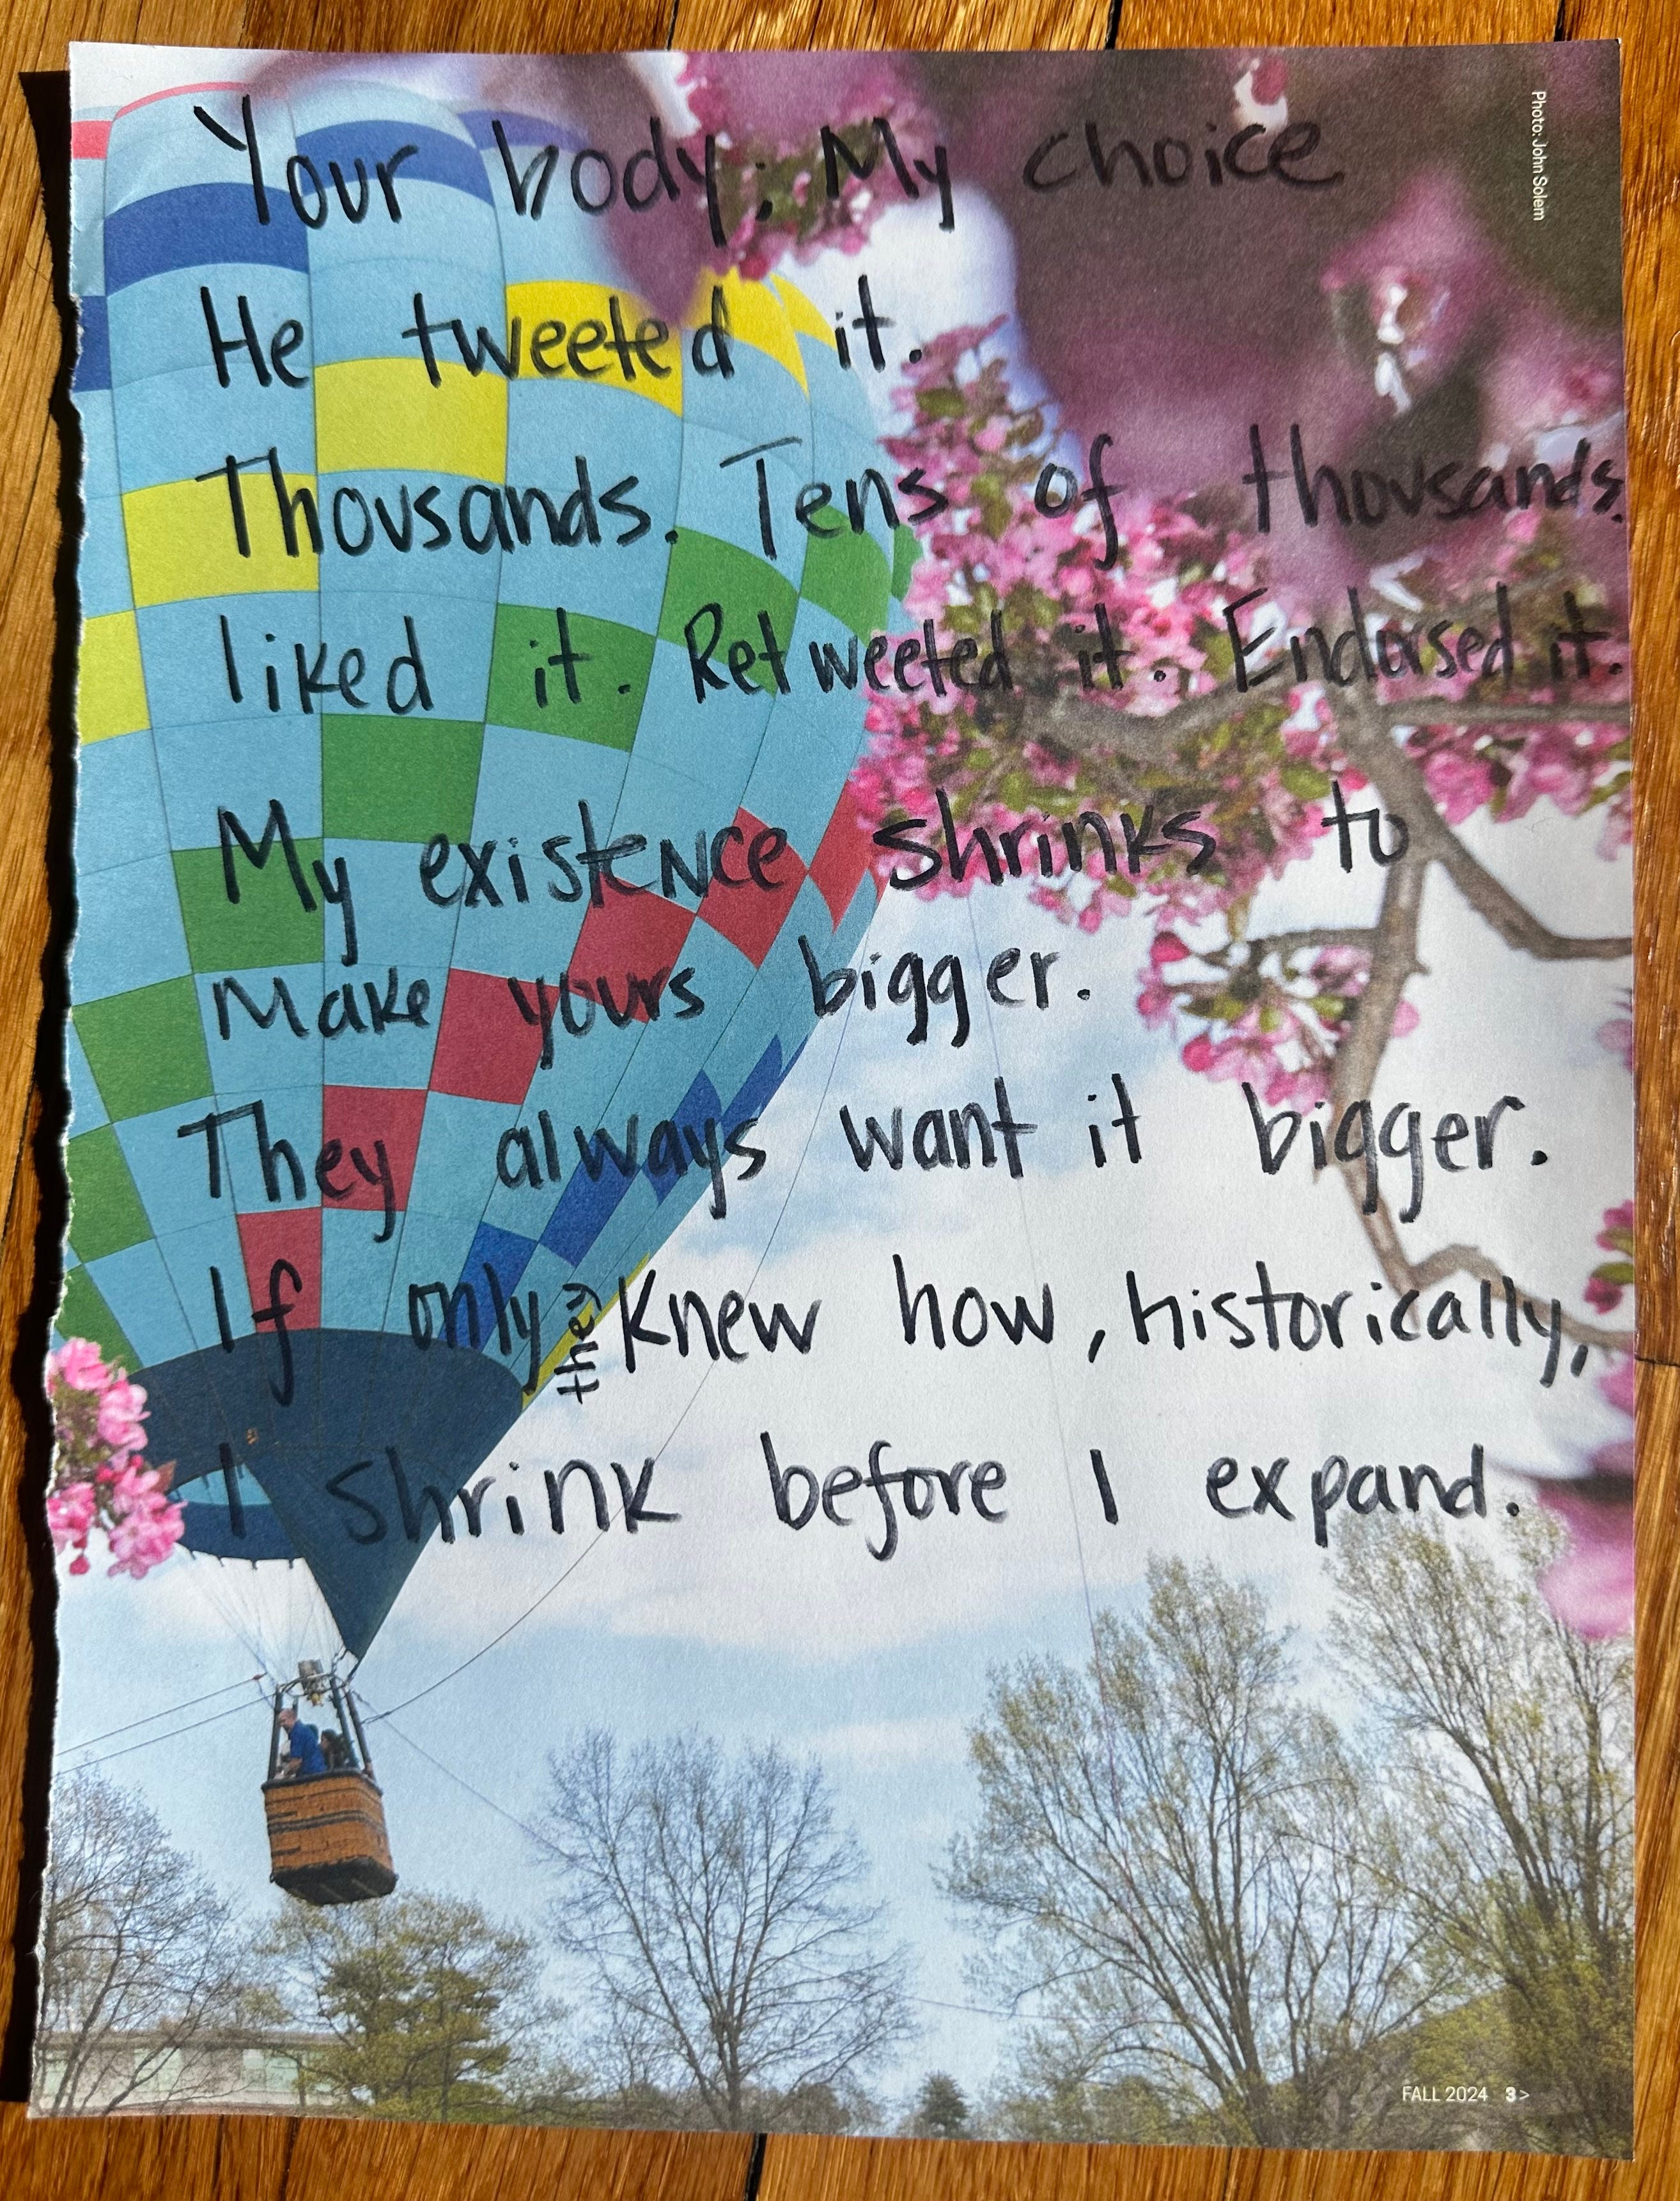 Your body; My choice
He tweeted it.
Thousands. Tens of thousands.
liked it. Retweeted it. Endorsed it.
My existence shrinks to
Make yours bigger.
They always want it bigger.
If only they knew how, historically,
I shrink before I expand.
Photo: John Solem
FALL 2024 3>